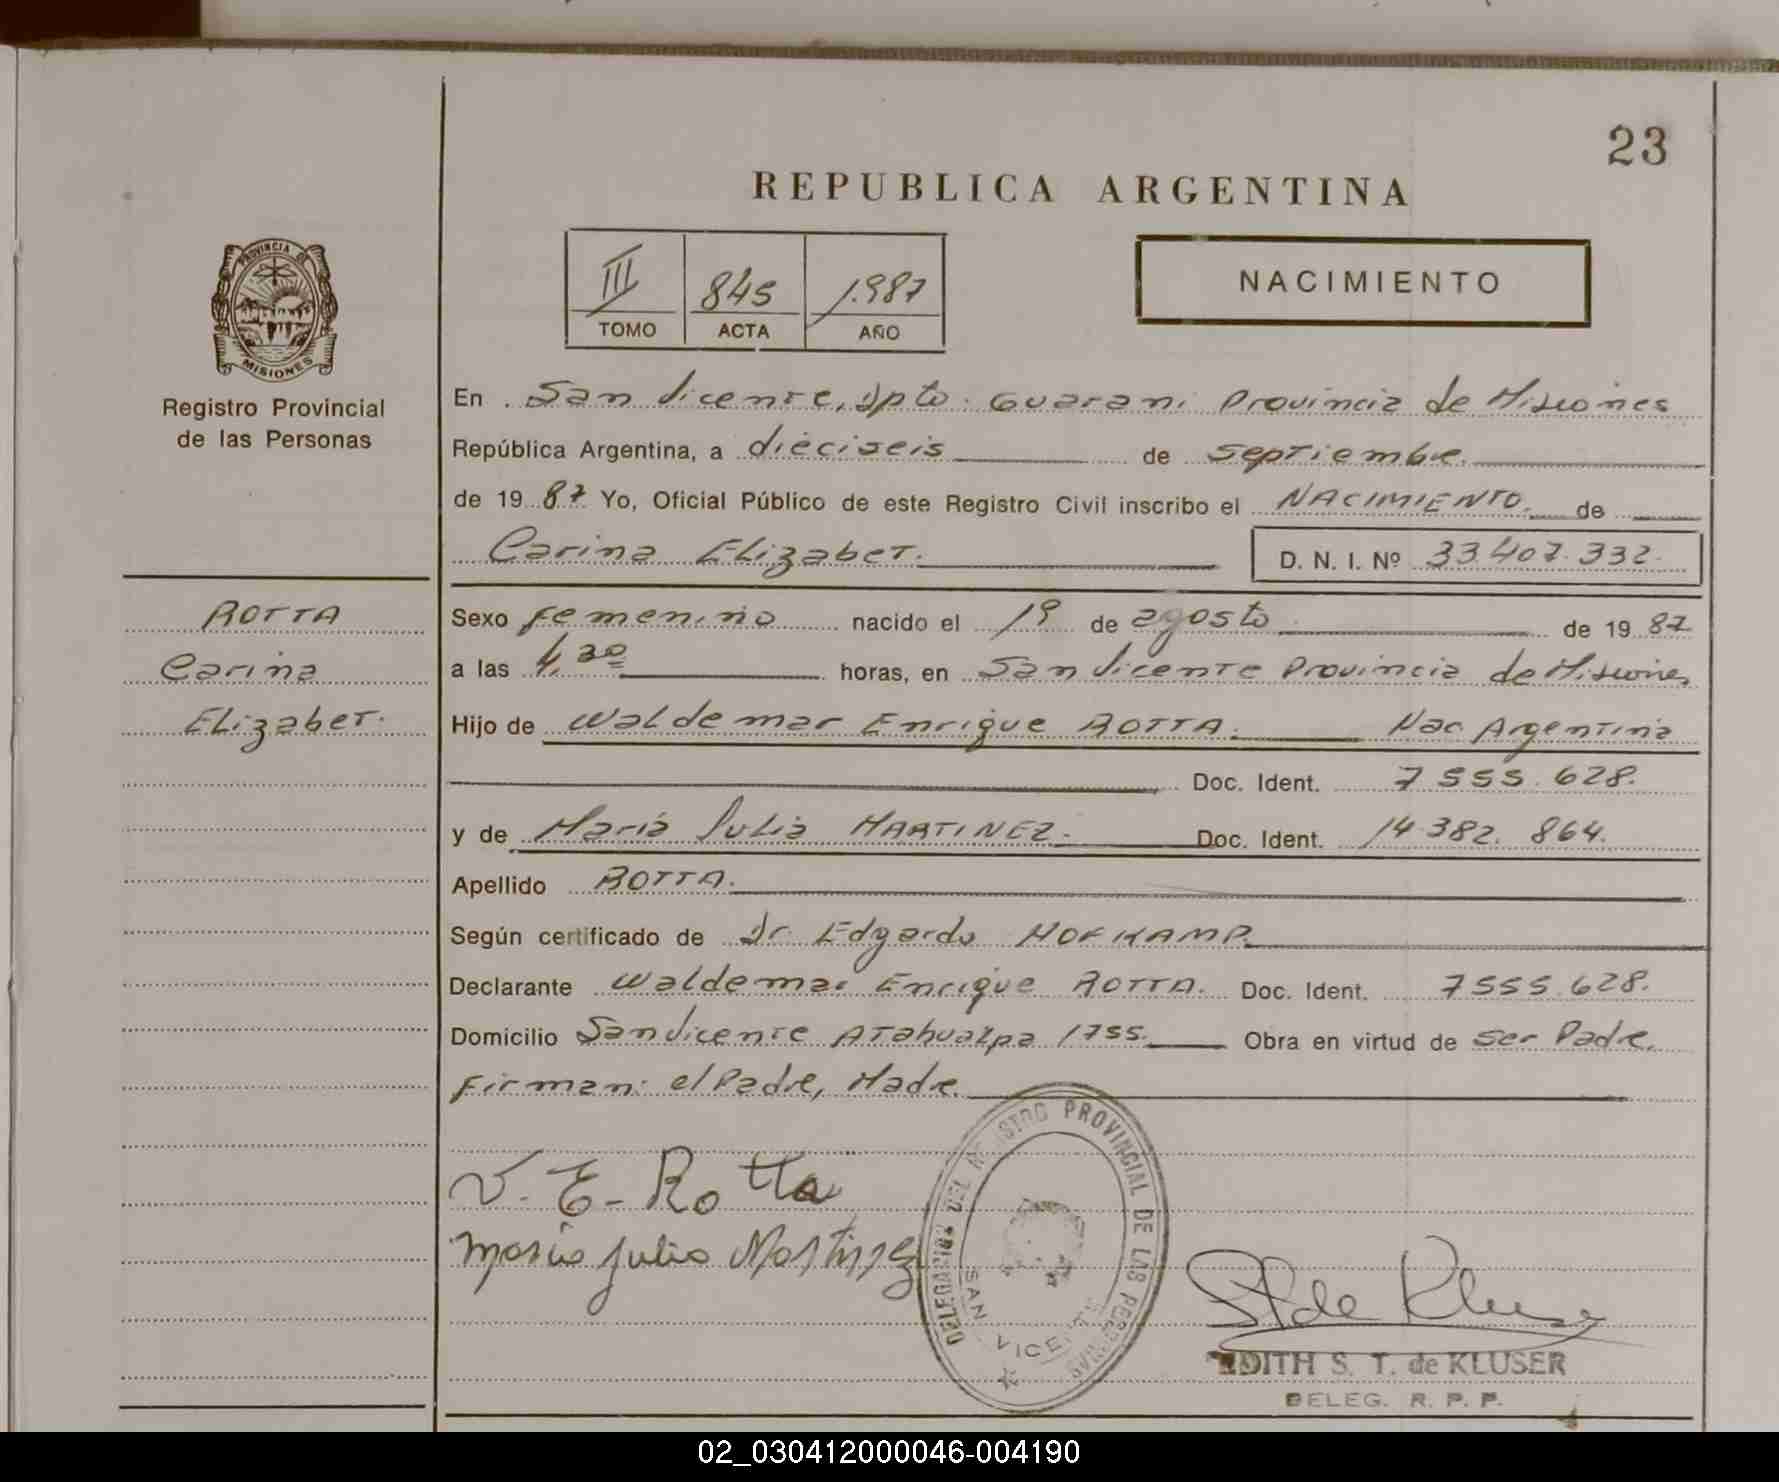 23
REPUBLICA ARGENTINA
III 845 1.987
TOMO ACTA AÑO
NACIMIENTO
PROVINCIA DE
MISIONES
Registro Provincial
de las Personas
En San Vicente, Dpto. Guarani Provincia de Misiones
República Argentina, a dieciseis de septiembre.
de 19 87 Yo, Oficial Público de este Registro Civil inscribo el NACIMIENTO. de
Carina Elizabet. D. N. I. Nº 33.407.332.
ROTTA
Carina
Elizabet.
Sexo femenino nacido el 19 de agosto de 19 87
a las 4,30 horas, en San Vicente Provincia de Misiones
Hijo de Waldemar Enrique ROTTA. Nac Argentina
Doc. Ident. 7 555.628.
y de María Julia MARTINEZ. Doc. Ident. 14.382.864.
Apellido ROTTA.
Según certificado de Dr. Edgardo HOFKAMP.
Declarante Waldemar Enrique ROTTA. Doc. Ident. 7555.628.
Domicilio San Vicente Atahualpa 1755. Obra en virtud de ser Padre.
Firman: el Padre, Madre.
V. E. Rotta
Maria Julia Martinez
DELEGACION DEL REGISTRO PROVINCIAL DE LAS PERSONAS
SAN VICENTE
EDITH S. T. de KLUSER
DELEG. R. P. P.
02_030412000046-004190